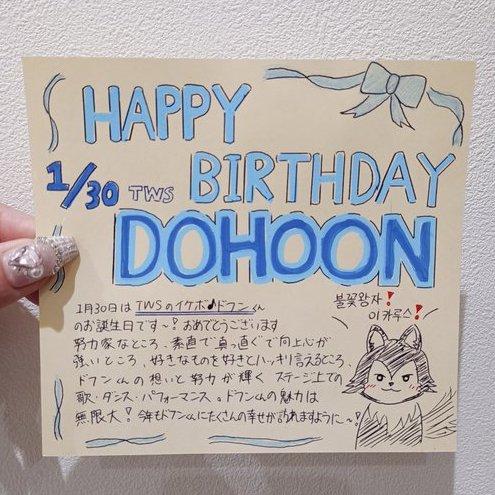 HAPPY
BIRTHDAY
1/30 TWS
DOHOON
1月30日は TWSのイケボ♪ドフンくん
のお誕生日です〜!おめでとうございます
努力家なところ、素直で真っ直ぐで向上心が
強いところ、好きなものを好きとハッキリ言えるところ、
ドフンくんの想いと努力が輝くステージ上での
歌・ダンス・パフォーマンス。ドフンくんの魅力は
無限大!今年もドフンくんにたくさんの幸せが訪れますように〜!
불꽃왕자!
이카루스!